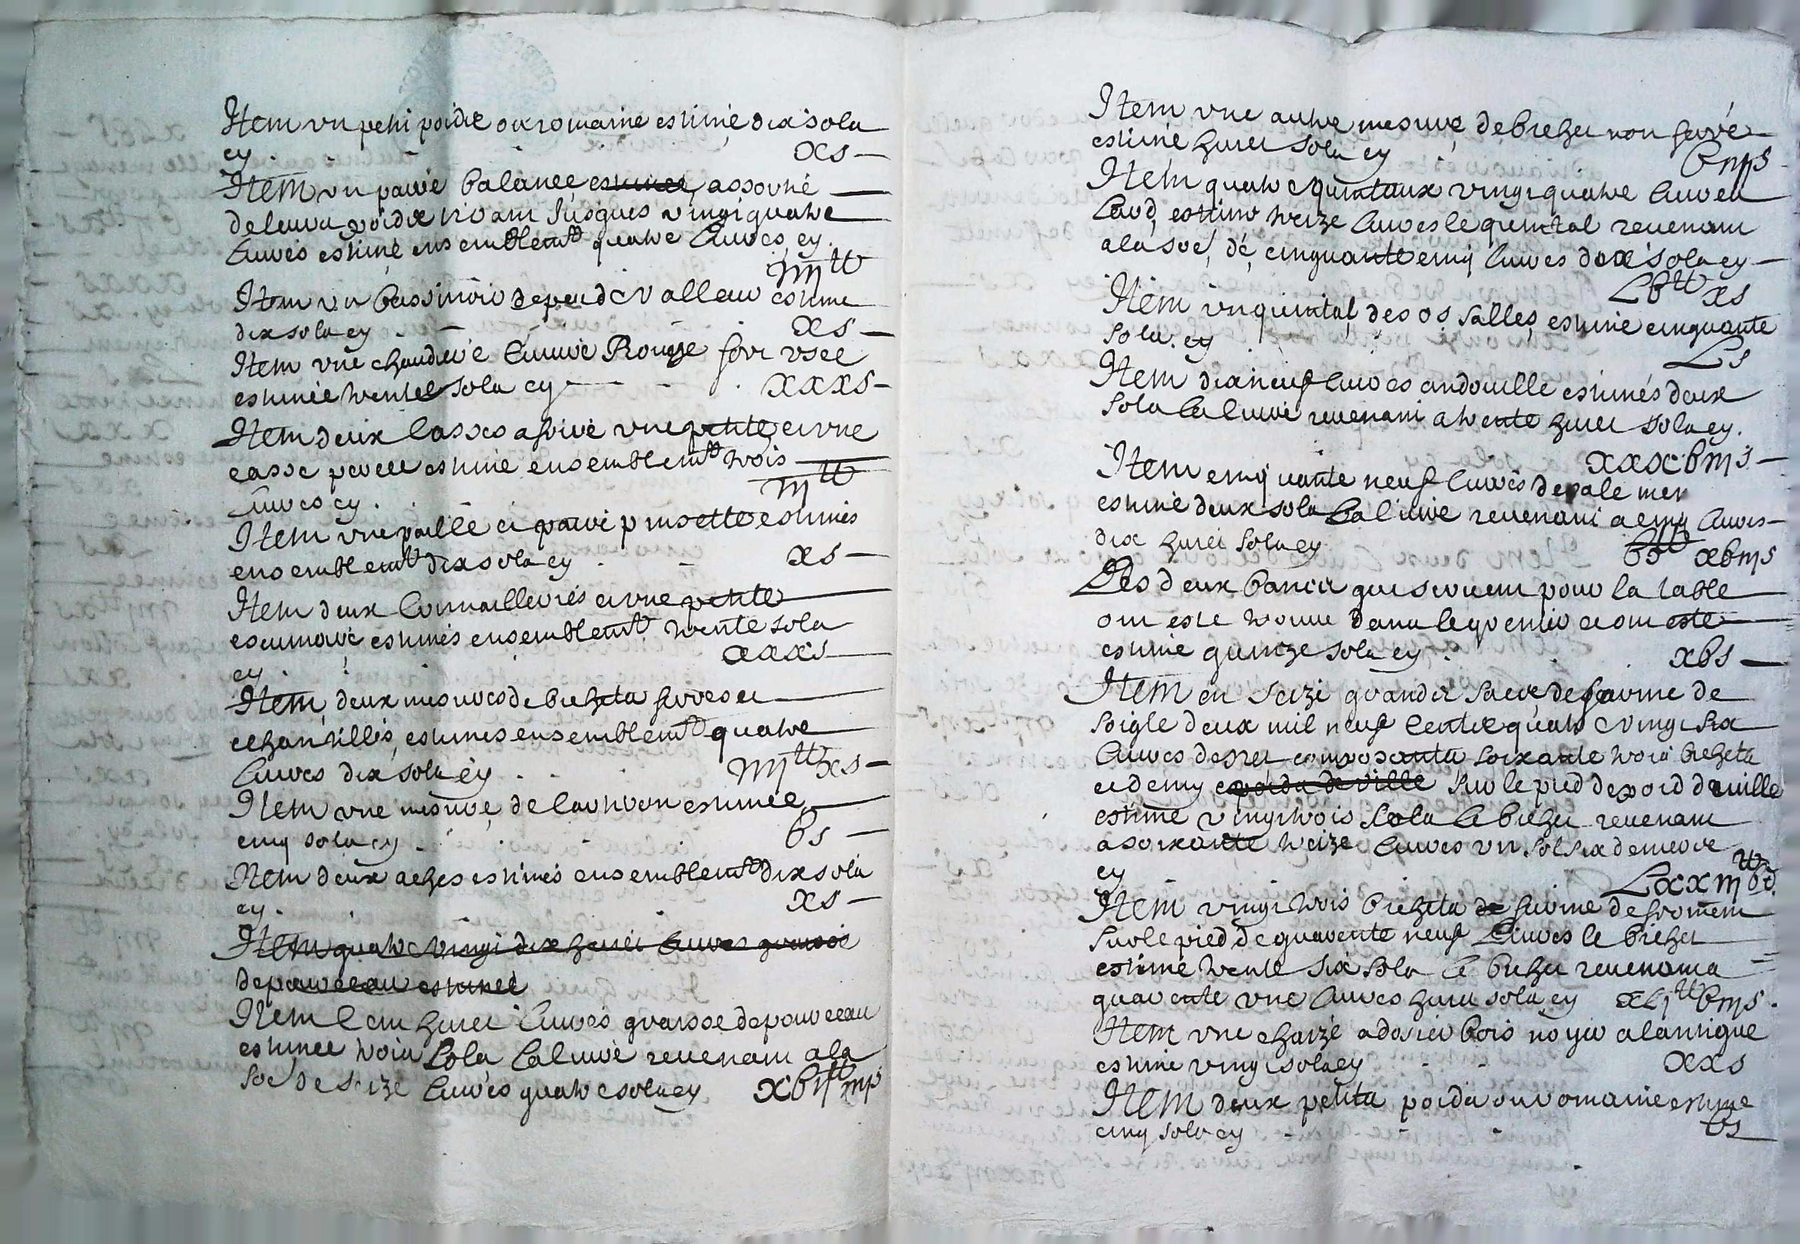 Item un petit poidz ou romaine estimé dix solz
cy . xs
Item un paire balance estimee assortie
de leurs poidz tirant jusques vingt quatre
livres estimé ensemblemt quatre livres cy.
iiij tt
Item un bassinoir de peu de valleur estimé
dix solz cy . xs
Item une chaudiere cuivre Rouge fort usée
estimée trente solz cy xxxs
Item deux casses a frire une petite et une
casse percée estimé ensemblemt trois
livres cy . iij tt
Item une paille et paire pinsette estimés
ensemblemt dix solz cy . xs
Item deux cornailleres et une petite
escumoire estimés ensemblemt trente solz
cy . xxxs
Item deux mesures de bichets ferres et
echantilles, estimés ensemblemt quatre
livres dix solz cy . iiij tt xs
Item une mesure de estimée
cinq solz cy . vs
Item deux aches estimés ensemblemt dix solz
cy . xs
Item quatre vingt dix huict livres graisse
de pourceau estimée
Item Cent huict livres graisse de pourceau
estimée trois solz la livre revenant a la
soe de seize livres quatre solz cy xvj tt iiijs
Item une autre mesure de bichet non ferré
estimé huict solz cy viijs
Item quatre quintaux vingt quatre livres
lard estimé treize livres le quintal revenant
a la soe de cinquante cinq livres dix solz cy
Lv tt xs
Item un quintal des os salles estimé cinquante
solz . cy Ls
Item dix neuf livres andouille estimés deux
solz la livre revenant a trente huict solz cy.
xxxviijs
Item cinquante neuf livres de
estimé deux solz la livre revenant a cinq livres
dix huict solz cy v tt xviijs
Les deux bancz qui servent pour la table
ont esté trouvé dans le grenier et ont esté
estimé quinze solz cy . xvs
Item en seize grandz sacz de farine de
soigle deux mil neuf centz quatre vingt six
livres de net composants soixante trois bichets
et demy poids de ville sur le pied de poid de ville
estimé vingt trois solz le bichet revenant
a soixante treize livres un sol six deniers
cy Lxxiij tt
Item vingt trois bichets de farine de froment
sur le pied de quarente neuf livres le bichet
estimé trente six solz le bichet revenant a
quarente une livres huict solz cy xLj tt viijs .
Item une chaize a dossier bois noyer a lantique
estimé vingt solz cy xxs
Item deux petits poids ou romaine estimé
cinq solz cy vs